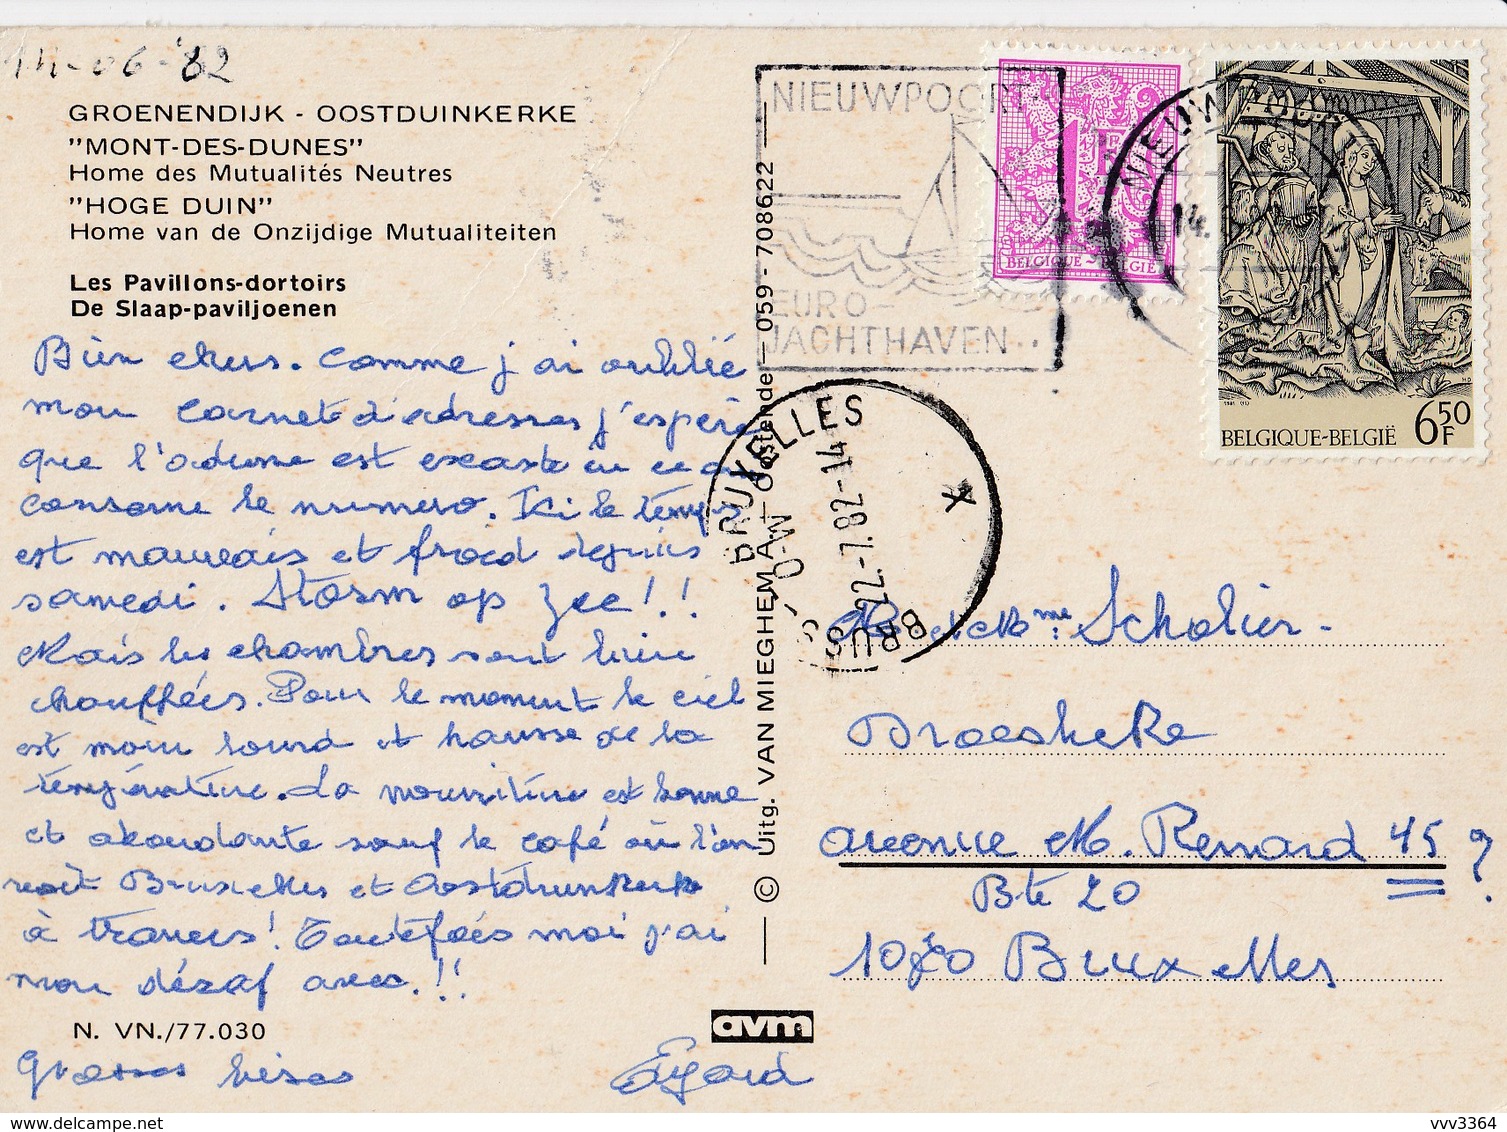 14-06-'82
GROENENDIJK - OOSTDUINKERKE
"MONT-DES-DUNES"
Home des Mutualités Neutres
"HOGE DUIN"
Home van de Onzijdige Mutualiteiten
Les Pavillons-dortoirs
De Slaap-paviljoenen
Bien chers. Comme j'ai oublié
mon carnet d'adresses j'espère
que l'adresse est exacte en ce qui
concerne le numero. Ici le temps
est mauvais et froid depuis
samedi. Storm op zee!!
Mais les chambres sont bien
chauffées. Pour le moment le ciel
est moin lourd et hausse de la
température. La nourriture est bonne
et abondante sauf le café où l'on
voit Bruxelles et Oostduinkerke
à travers! Toutefois moi j'ai
mon dézaf avec.!!
N. VN./77.030
Grosses bises
© Uitg. VAN MIEGHEM A. - Oostende - 059 - 708622
avm
NIEUWPOORT
EURO-
JACHTHAVEN..
NIEUWPOORT
14.
1F
BELGIQUE-BELGIË
BELGIQUE-BELGIË 6,50 F
BRUXELLES X BRUSSEL
22-7.82-14
M et Mme Scholier-
Droesheke
avenue M. Renard 45?
Bte 20
1070 Bruxelles
vvv3364